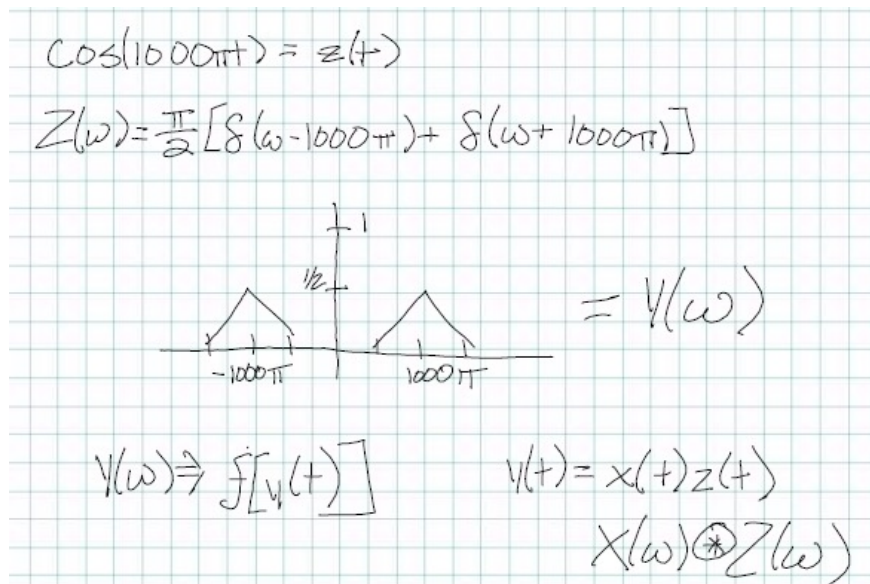 cos(1000πt) = z(t)
Z(ω) = π/2 [δ(ω-1000π) + δ(ω+1000π)]
1
1/2
= Y(ω)
-1000π 1000π
Y(ω) ⇒ f[y(t)] y(t) = x(t)z(t)
X(ω)⊛Z(ω)